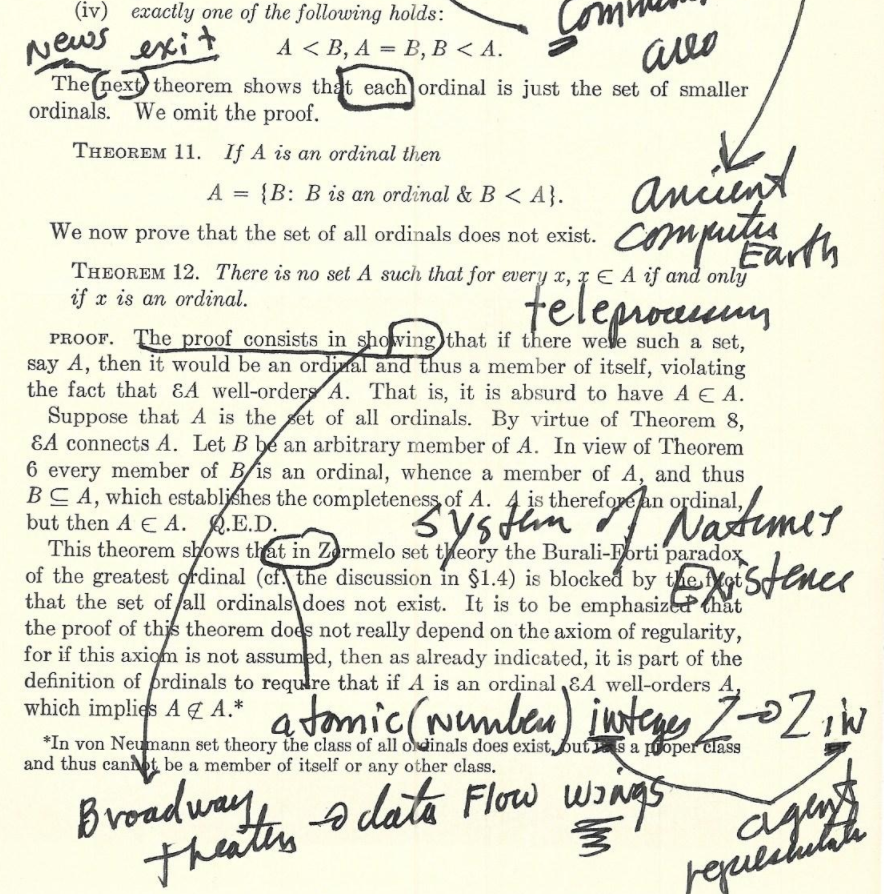 (iv) exactly one of the following holds:
Comment
area
News exit
A < B, A = B, B < A.
The next theorem shows that each ordinal is just the set of smaller
ordinals. We omit the proof.
THEOREM 11. If A is an ordinal then
A = {B: B is an ordinal & B < A}.
ancient
computer
Earth
We now prove that the set of all ordinals does not exist.
THEOREM 12. There is no set A such that for every x, x ∈ A if and only
if x is an ordinal.
teleprocessing
PROOF. The proof consists in showing that if there were such a set,
say A, then it would be an ordinal and thus a member of itself, violating
the fact that ℰA well-orders A. That is, it is absurd to have A ∈ A.
Suppose that A is the set of all ordinals. By virtue of Theorem 8,
ℰA connects A. Let B be an arbitrary member of A. In view of Theorem
6 every member of B is an ordinal, whence a member of A, and thus
B ⊆ A, which establishes the completeness of A. A is therefore an ordinal,
but then A ∈ A. Q.E.D.
System of
Existence
This theorem shows that in Zermelo set theory the Burali-Forti paradox
of the greatest ordinal (cf. the discussion in §1.4) is blocked by the fact
that the set of all ordinals does not exist. It is to be emphasized that
the proof of this theorem does not really depend on the axiom of regularity,
for if this axiom is not assumed, then as already indicated, it is part of the
definition of ordinals to require that if A is an ordinal ℰA well-orders A,
which implies A ∉ A.*
atomic (number) integer Z → Z in
*In von Neumann set theory the class of all ordinals does exist, but it is a proper class
and thus cannot be a member of itself or any other class.
Broadway
theaters → data Flow wings
agent